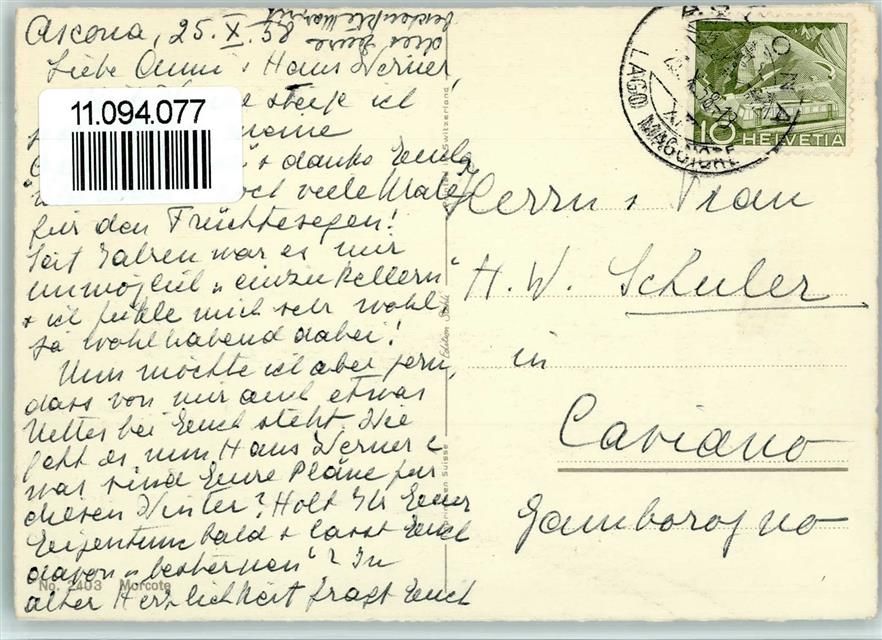 Ascona, 25. X. 58
dies Eure
beschenkte Marit
Liebe Anni + Hans Werner,
steige ich
meine
+ danke Euch
noch viele Male
für den Früchtesegen!
Seit Jahren war es mir
unmöglich „einzukellern"
+ ich fühle mich sehr wohl,
ja wohlhabend dabei!
Nun möchte ich aber gern,
dass von mir auch etwas
Nettes bei Euch steht. Wie
geht es nun Hans Werner +
was sind Eure Pläne für
diesen Winter? Holt Ihr Euer
Eigentum bald + lasst Euch
davon „besternen"? In
alter Herzlichkeit fragt Euch
11.094.077
No. 2403 Morcote
Switzerland
Edition
Suisse
ASCONA
LAGO MAGGIORE
10 HELVETIA
Herrn + Frau
H. W. Schuler
in
Caviano
Gambarogno